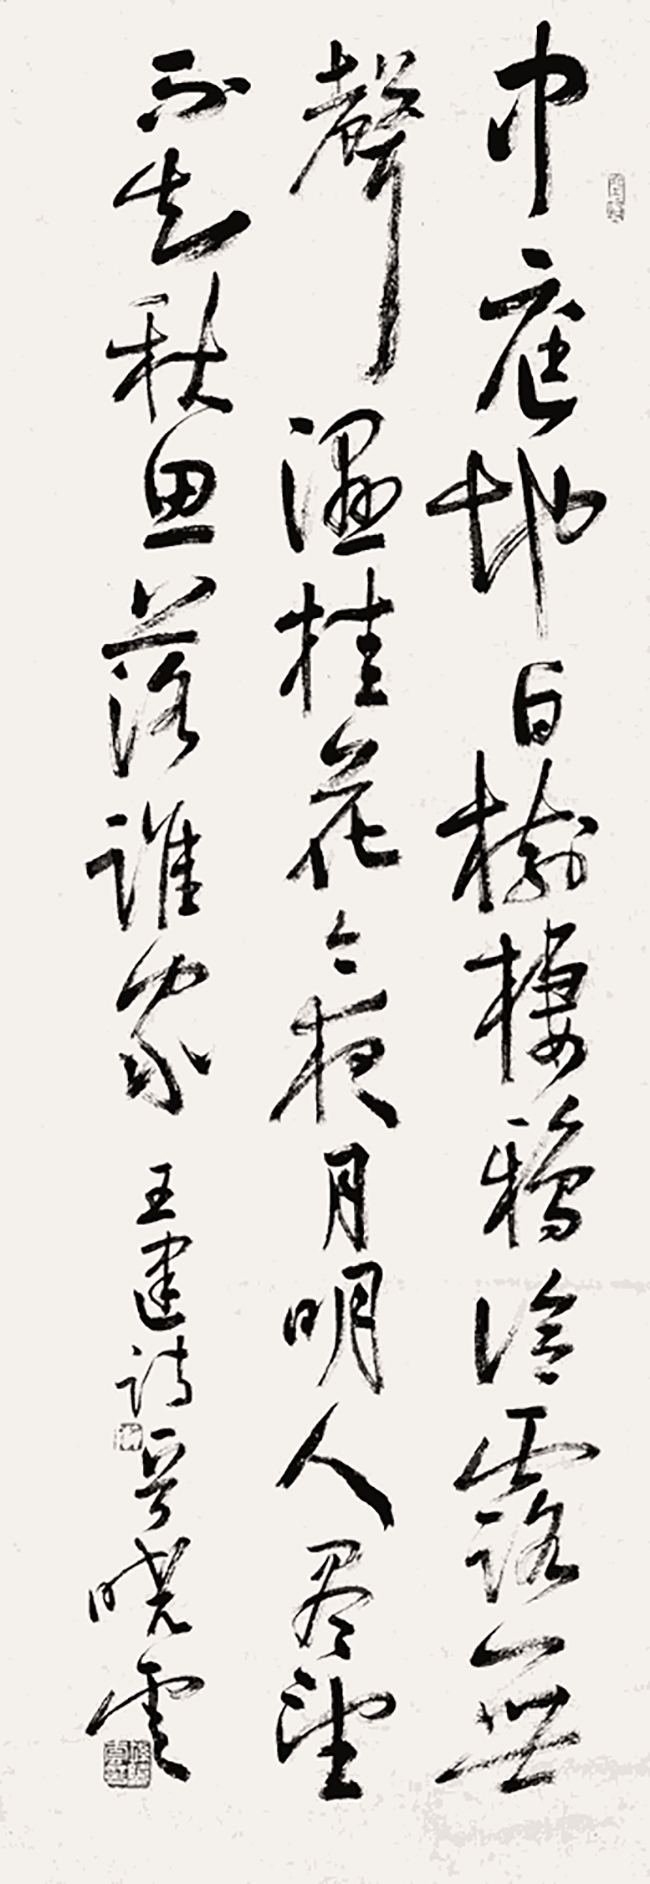 中庭地白樹棲鴉冷露無
聲濕桂花今夜月明人尽望
不知秋思落誰家 王建詩 晓雲